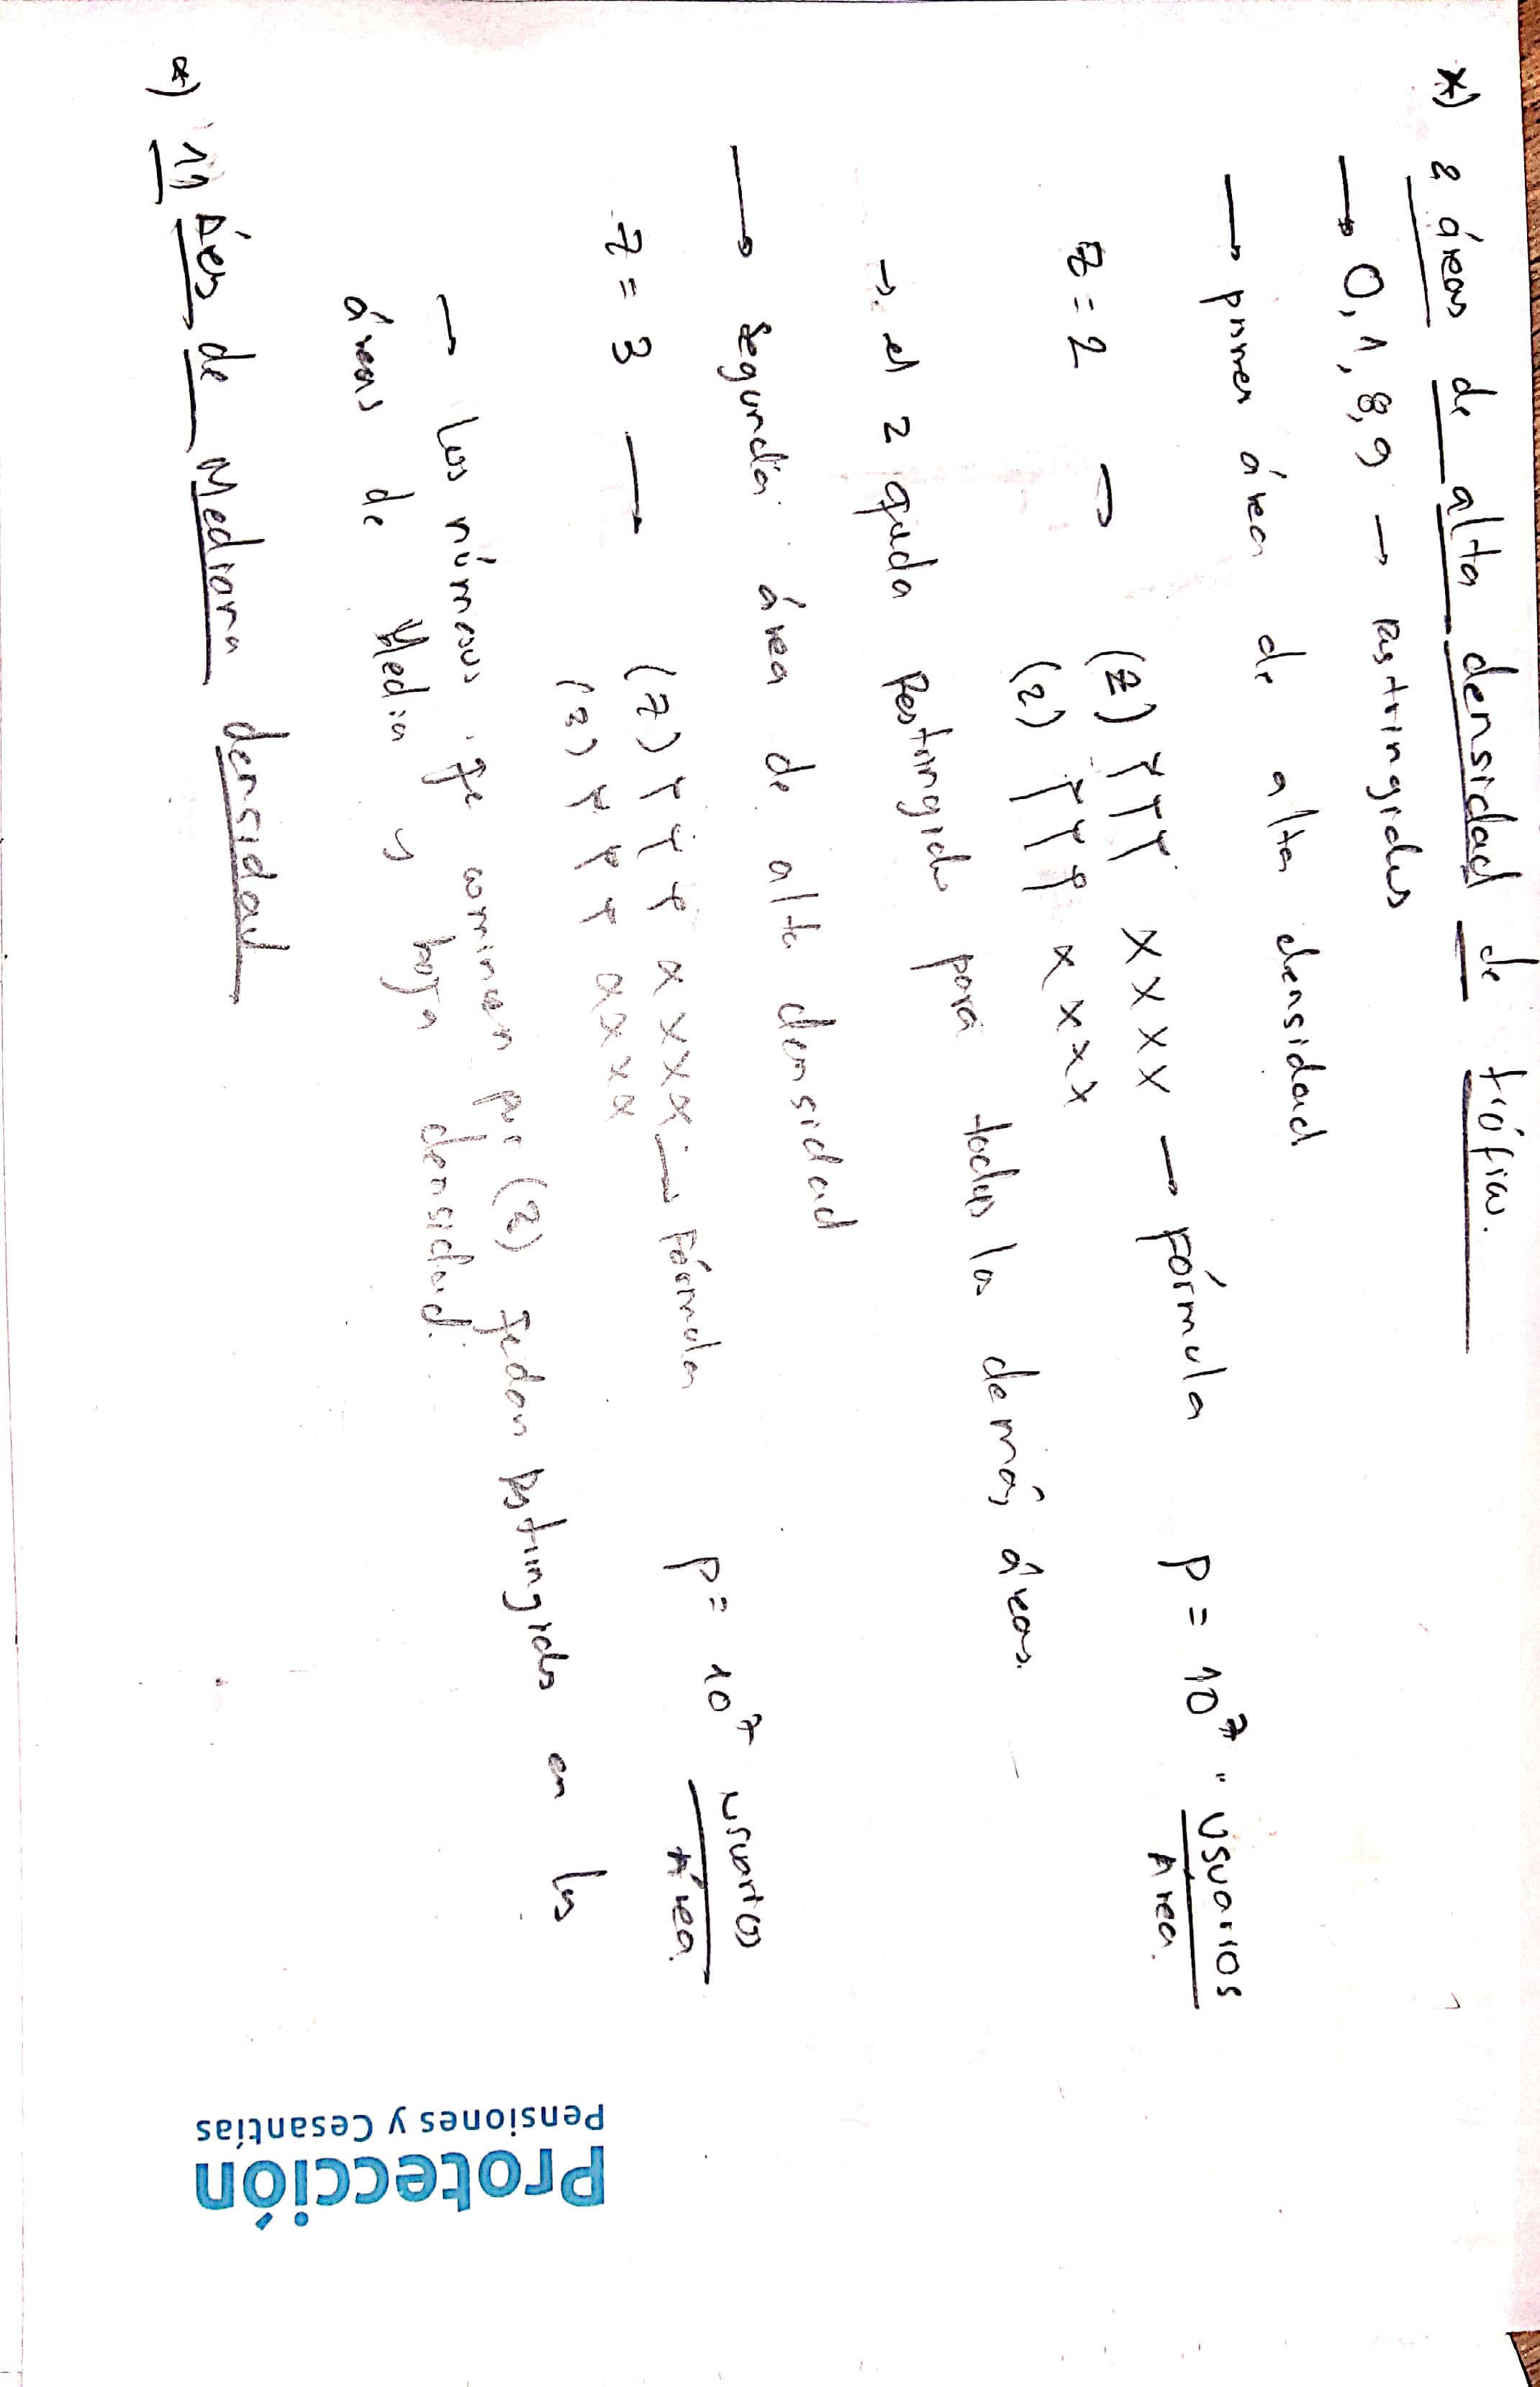 Protección
Pensiones y Cesantías
*) 2 áreas de alta densidad de tráfico.
→ 0, 1, 8, 9 → restringidos
→ primer área de alta densidad
z = 2 → (z) YYY XXXX — Fórmula P = 10⁷ · usuarios / Area.
(2) YYY XXXX
→ el 2 queda Restringido para todas la demás áreas.
→ segunda área de alta densidad
z = 3 — (z) YYY XXXX — Fórmula P = 10⁷ usuarios / Área
(3) YYY XXXX
— Los números que (3) quedan restringido en las
áreas de Media y baja densidad.
*) 11 de Mediana densidad